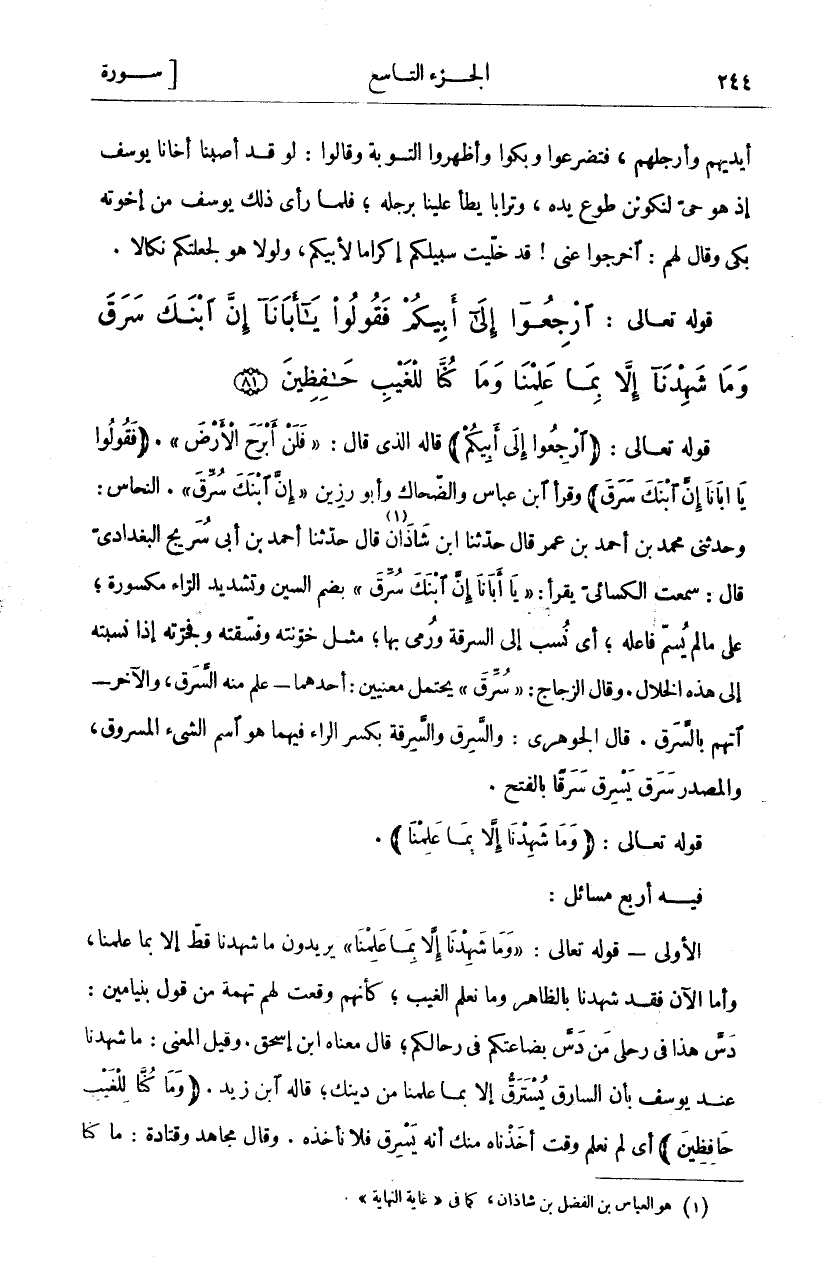 ٢٤٤ الجـزء التـاسع [ سـورة
أيديهم وأرجلهم ، فتضرعوا وبكوا وأظهروا التـوبة وقالوا : لو قـد أصبنا أخانا يوسف
إذ هو حىّ لنكونن طوع يده ، وترابا يطأ علينا برجله ؛ فلمـا رأى ذلك يوسف من إخوته
بكى وقال لهم : ٱخرجوا عنى ! قد خلّيت سبيلكم إكراما لأبيكم، ولولا هو لجعلتكم نكالا .
قوله تعـالى : ٱرْجِعُـوٓا إِلَىٰٓ أَبِيكُمْ فَقُولُوا۟ يَـٰٓأَبَانَآ إِنَّ ٱبْنَـكَ سَرَقَ
وَمَا شَهِدْنَآ إِلَّا بِمَـا عَلِمْنَا وَمَا كُنَّا لِلْغَيْبِ حَـٰفِظِينَ ﴿٨١﴾
قوله تعـالى : ﴿ٱرْجِعُوا إِلَى أَبِيكُمْ﴾ قاله الذى قال : « فَلَنْ أَبْرَحَ الْأَرْضَ » . ﴿فَقُولُوا
يَا ابَانَا إِنَّ ٱبْنَكَ سَرَقَ﴾ وقرأ ٱبن عباس والضّحاك وأبو رزين « إِنَّ ٱبْنَكَ سُرِّقَ» . النحاس :
وحدثنى محمد بن أحمد بن عمر قال حدّثنا ابن شَاذَان (١) قال حدّثنا أحمد بن أبى سُرَيج البغدادىّ
قال : سمعت الكسائىّ يقرأ : « يا أَبَانَا إِنَّ ٱبْنَكَ سُرِّقَ » بضم السين وتشديد الراء مكسورة ؛
على مالم يُسمّ فاعله ؛ أى نُسب إلى السرقة ورُمى بها؛ مثـل خوّنته وفسّقته وفجّرته إذا نسبته
إلى هذه الخلال . وقال الزجاج : « سُرِّقَ » يحتمل معنيين : أحدهما — علم منه السَّرَق، والآخر—
ٱتهم بالسَّرَق . قال الجوهرى : والسَّرِق والسَّرِقة بكسر الراء فيهما هو ٱسم الشىء المسروق،
والمصدر سَرَق يَسْرِق سَرَقًا بالفتح .
قوله تعـالى : ﴿ وَمَا شَهِدْنَا إِلَّا بِمَـا عَلِمْنَا ﴾ .
فيـه أربع مسائل :
الأولى — قوله تعالى : «وَمَا شَهِدْنَا إِلَّا بِمَـا عَلِمْنَا» يريدون ما شهدنا قطّ إلا بما علمنا،
وأما الآن فقـد شهدنا بالظاهر وما نعلم الغيب ؛ كأنهم وقعت لهم تهمة من قول بنيامين :
دَسَّ هذا فى رحلى مَن دَسَّ بضاعتكم فى رحالكم؛ قال معناه ابن إسحق . وقيل المعنى : ما شهدنا
عنـد يوسف بأن السارق يُسْتَرَقُّ إلا بمـا علمنا من دينك؛ قاله ٱبن زيد . ﴿ وَمَا كُنَّا لِلْغَيْبِ
حَافِظِينَ ﴾ أى لم نعلم وقت أخَذْناه منك أنه يَسْرِق فلا نأخذه . وقال مجاهد وقتادة : ما كنا
(١) هو العباس بن الفضل بن شاذان، كما فى « غاية النهاية » .